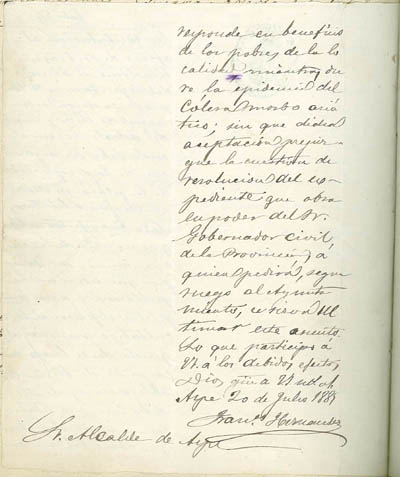 responde en beneficio
de los pobres de la lo
calidad mientras du
re la epidemia del
Cólera morbo asiá
tico; sin que dicha
aceptación prejuz-
gue la cuestion de
resolucion del es-
pediente que obra
en poder del Sr.
Gobernador Civil
de la Provincia, á
quien pedirá, segun
ruego al Ayunta
miento, se sirva ul
timar este asunto.
Lo que participo á
V. á los debidos efectos,
Dios gue a V. m. a.
Aspe 20 de Julio 1885
Fran.º Hernandez
Sr. Alcalde de Aspe